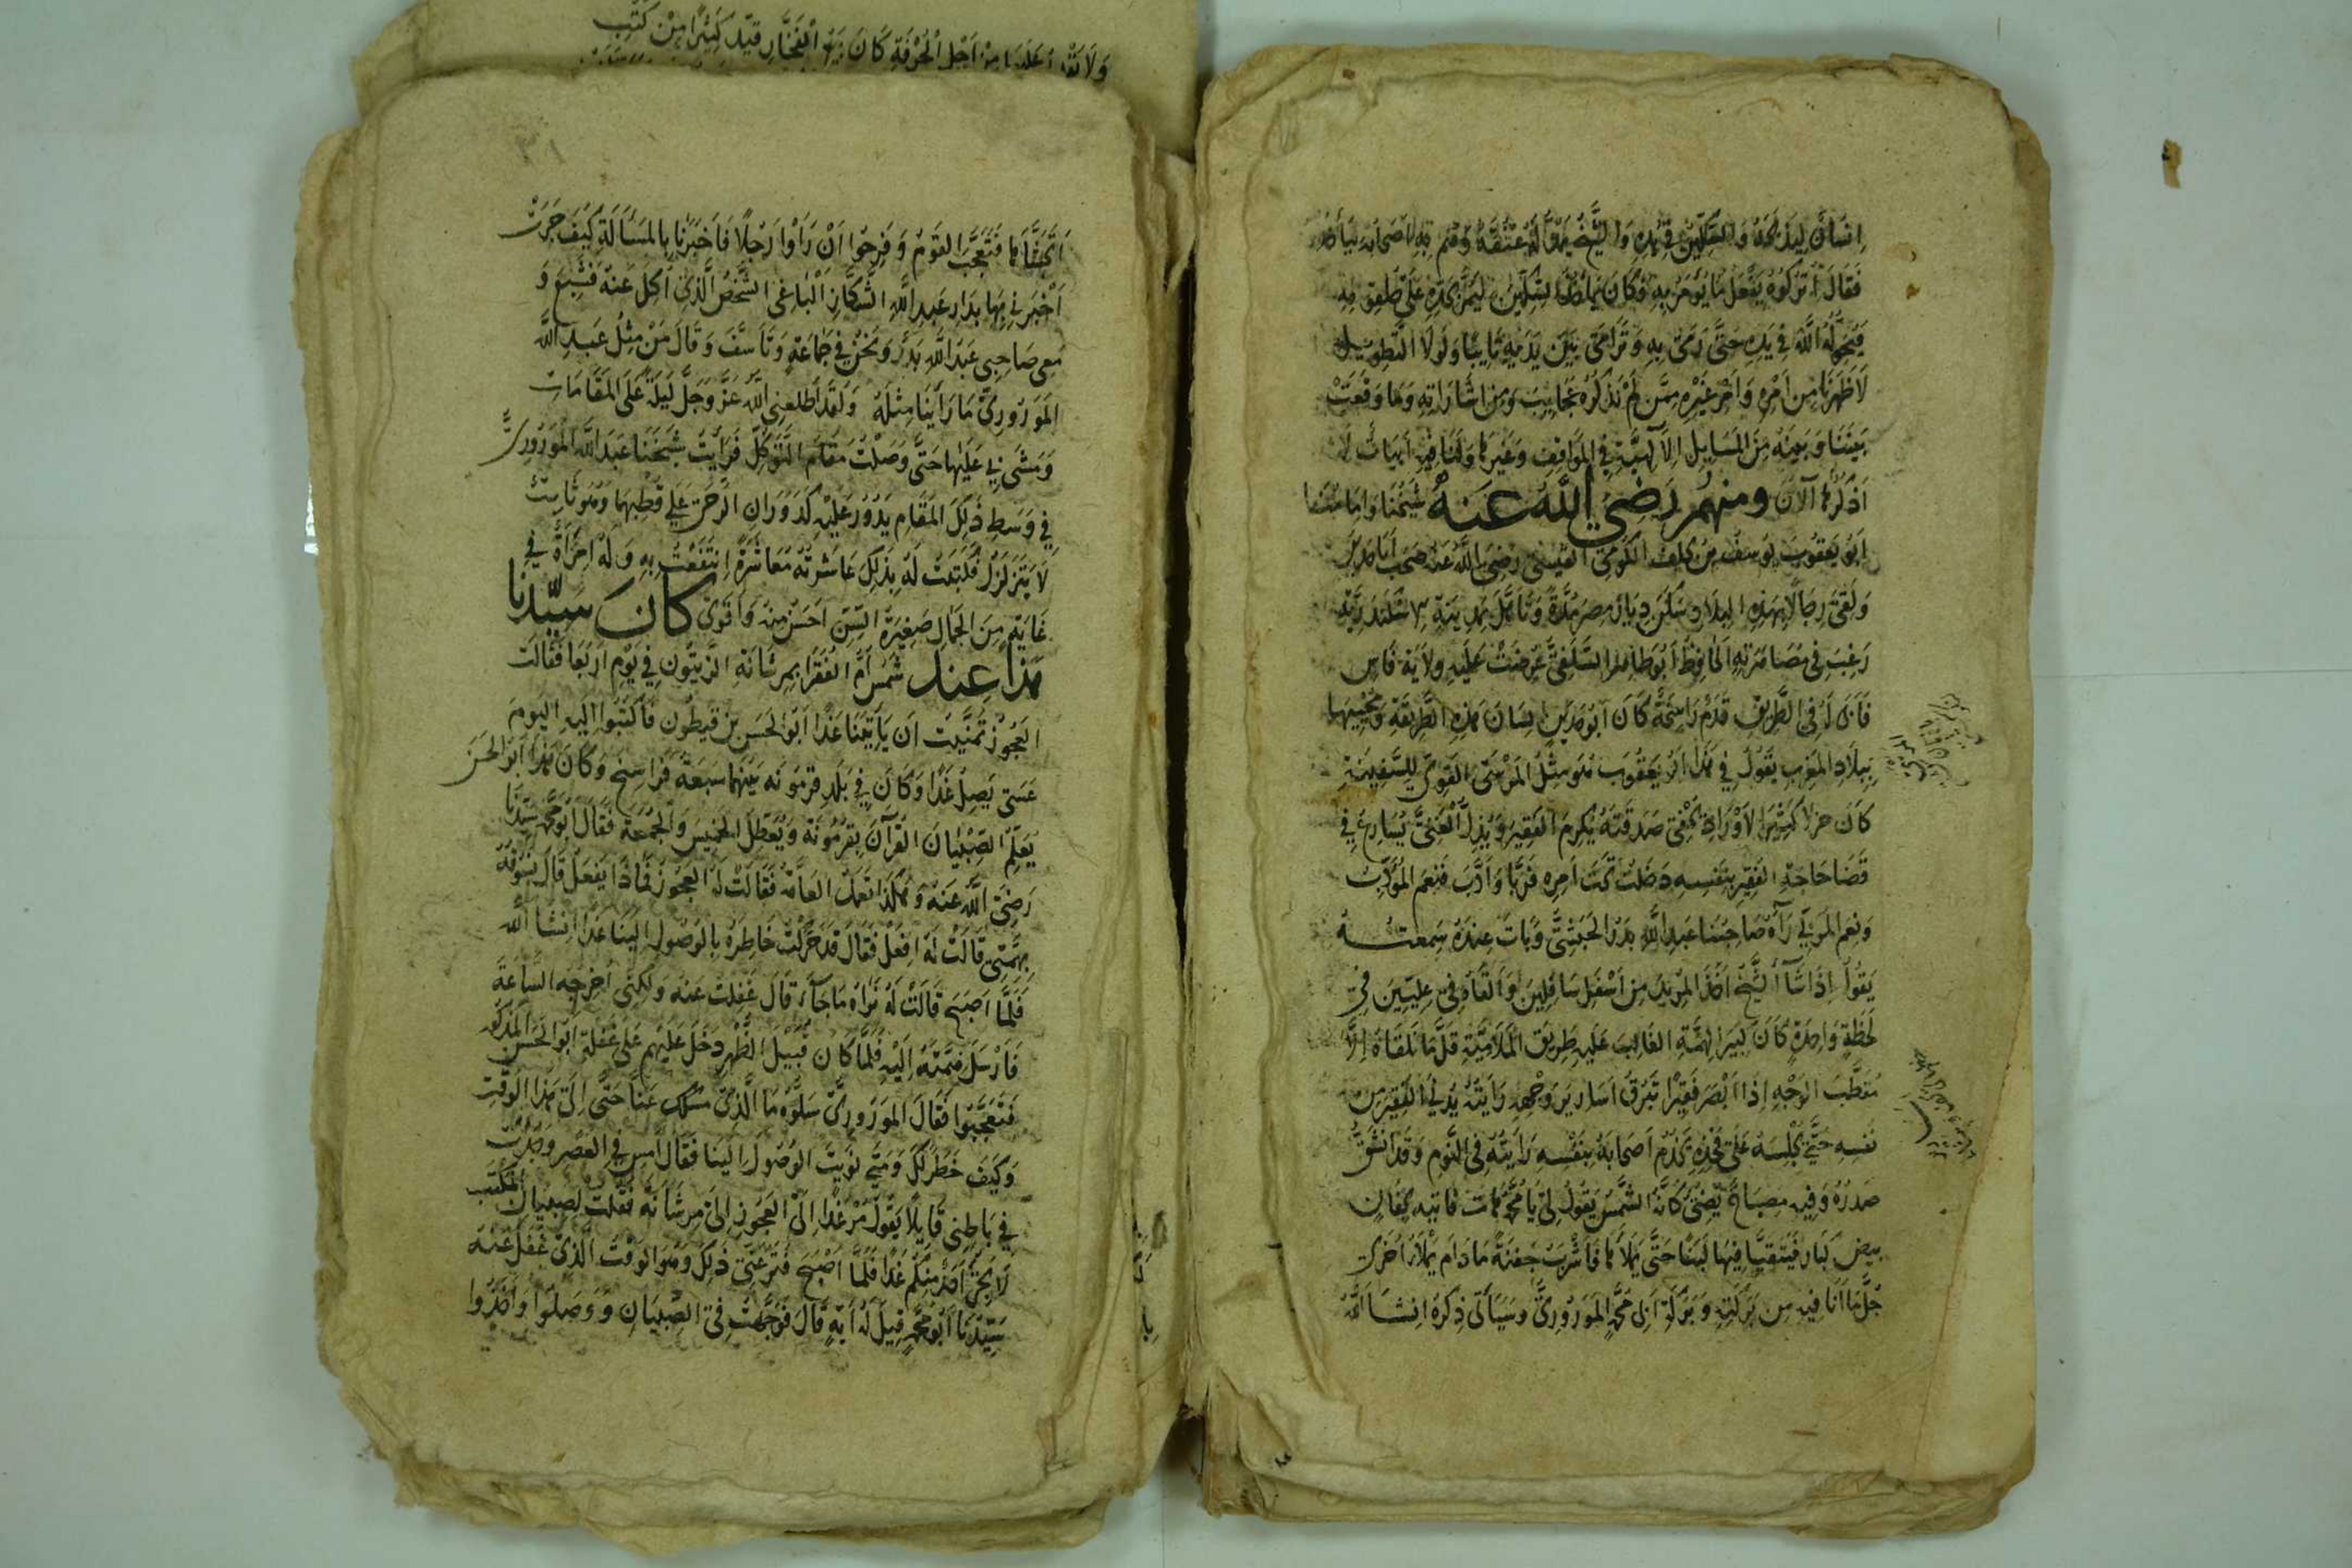 انسان ليذبحه والسكين في يده والشيخ يمد له عنقه وهم به اصحابه ليأخذوه
فقال اتركوه يفعل ما يؤمر به وكان بالسكين ليمر بحده على حلقه به
فيحوله الله في يده حتى رمى به وترامى بين يديه تايبا ولولا التطويل
لاظهرنا من امره وامر غيره ممن لم نذكره عجايب ومن اشاراته وما وقعت
بيننا وبينه من المسايل الالهية في المواقف وغيرها ولنا فيه ابيات لا
اذكرها الآن ومنهم رضي الله عنه شيخنا وامامنا
ابو يعقوب يوسف بن يخلف الكومي القيسي رضي الله عنه صحب ابا مدين
ولقي رجالا بهذه البلاد سكن ديار مصر مدة وتأهل بمدينة الاسكندرية
رغب في مصاهرته الحافظ ابو طاهر السلفي عرضت عليه ولاية فاس
فأبى له في الطريق قدم راسخة كان ابو مدين لسان هذه الطريقة ومحييها
ببلاد المغرب يقول في هذا ابو يعقوب هو مثل المرسى القوي للسفينة
كان حزلا كثير الاوراد يخفي صدقته يكرم الفقير ويذل الغني يسارع في
قضا حاجة الفقير بنفسه دخلت تحت امره فربا وادب فنعم المؤدب
ونعم المربي رآه صاحبنا عبد الله بدر الحبشي وبات عنده سمعته
يقول اذا شآ الشيخ اخذ المريد من اسفل سافلين والقاه في عليين في
لحظة واحدة كان كبير الهمة الغالب عليه طريق الملامتية قل ما تلقاه الا
مقطب الوجه اذا ابصر فقيرا تبرق اسارير وجهه رايته يدني الفقير من
نفسه حتى يجلسه على فخذه يخدم اصحابه بنفسه رايته في النوم وقد انشق
صدره وفيه مصباح يضي كانه الشمس يقول لي يا محمد هات فاتيه بجفان
بيض كبار فيتقيا فيها لبنا حتى يملأها فاشرب جفنة ما دام يملأ اخرى
جل ما انا فيه من بركته وبركة ابى محمد الموروري وسيأتى ذكره انشا الله
ولا من اجل الحرفة كان الفخار قيد كثيرا من كتب
٣١
اكلها فتعجب القوم وفرحوا ان راوا رجلا فاخبرنا بالمسألة كيف جرت
اخبرني بها بدار عبد الله الشكاز الباغي الشخص الذي اكل عنه فشبع و
معى صاحبى عبد الله بدر ونحن في جماعة وتاسف وقال من مثل عبد الله
الموروري ما راينا مثله ولقد اطلعني الله عز وجل ليلة على المقامات
ومشى بي عليها حتى وصلت مقام التوكل فرأيت شيخنا عبد الله الموروري
في وسط ذلك المقام يدور عليه كدوران الرحى على قطبها وهو ثابت
لا يتزلزل فكتبت له بذلك عاشرته معاشرة انتفعت به وله امرأة في
غاية من الجمال صغيرة السن احسن منه واقوى كان سيدنا
هذا عند شمس ام الفقرا بمرشانة الزيتون في يوم اربعا فقالت
العجوز تمنيت ان يأتينا غدا ابو الحسن بن قيطون فاكتبوا اليه اليوم
عسى يصل غدا وكان في بلد قرمونه بينهما سبعة فراسخ وكان هذا ابو الحسن
يعلم الصبيان القرآن بقرمونة ويعطل الخميس والجمعة فقال ابو محمد سيدنا
رضي الله عنه وهكذا تعمل العامة فقالت له العجوز فماذا يفعل قال نسوقه
بهمتى قالت له افعل فقال قد حركت خاطره بالوصول الينا غدا انشا الله
فلما اصبح قالت له نراه ما جآء قال غفلت عنه ولكنى اخرجه الساعة
فارسل همته اليه فلما كان قبيل الظهر دخل عليهم على غفلة ابو الحسن المذكور
فتعجبوا فقال الموروري سلوه ما الذى مسك عنا حتى الى هذا الوقت
وكيف خطر لك ومتى نويت الوصول الينا فقال امس في العصر وجدت
في باطنى قايلا يقول مر غدا الى العجوز الى مرشانة فقلت لصبيان المكتب
لا يجي احد منكم غدا فلما اصبح فترعنى ذلك وهو الوقت الذى غفل عنه
سيدنا ابو محمد قيل له ايه قال فوجهت في الصبيان ووصلوا واخذوا